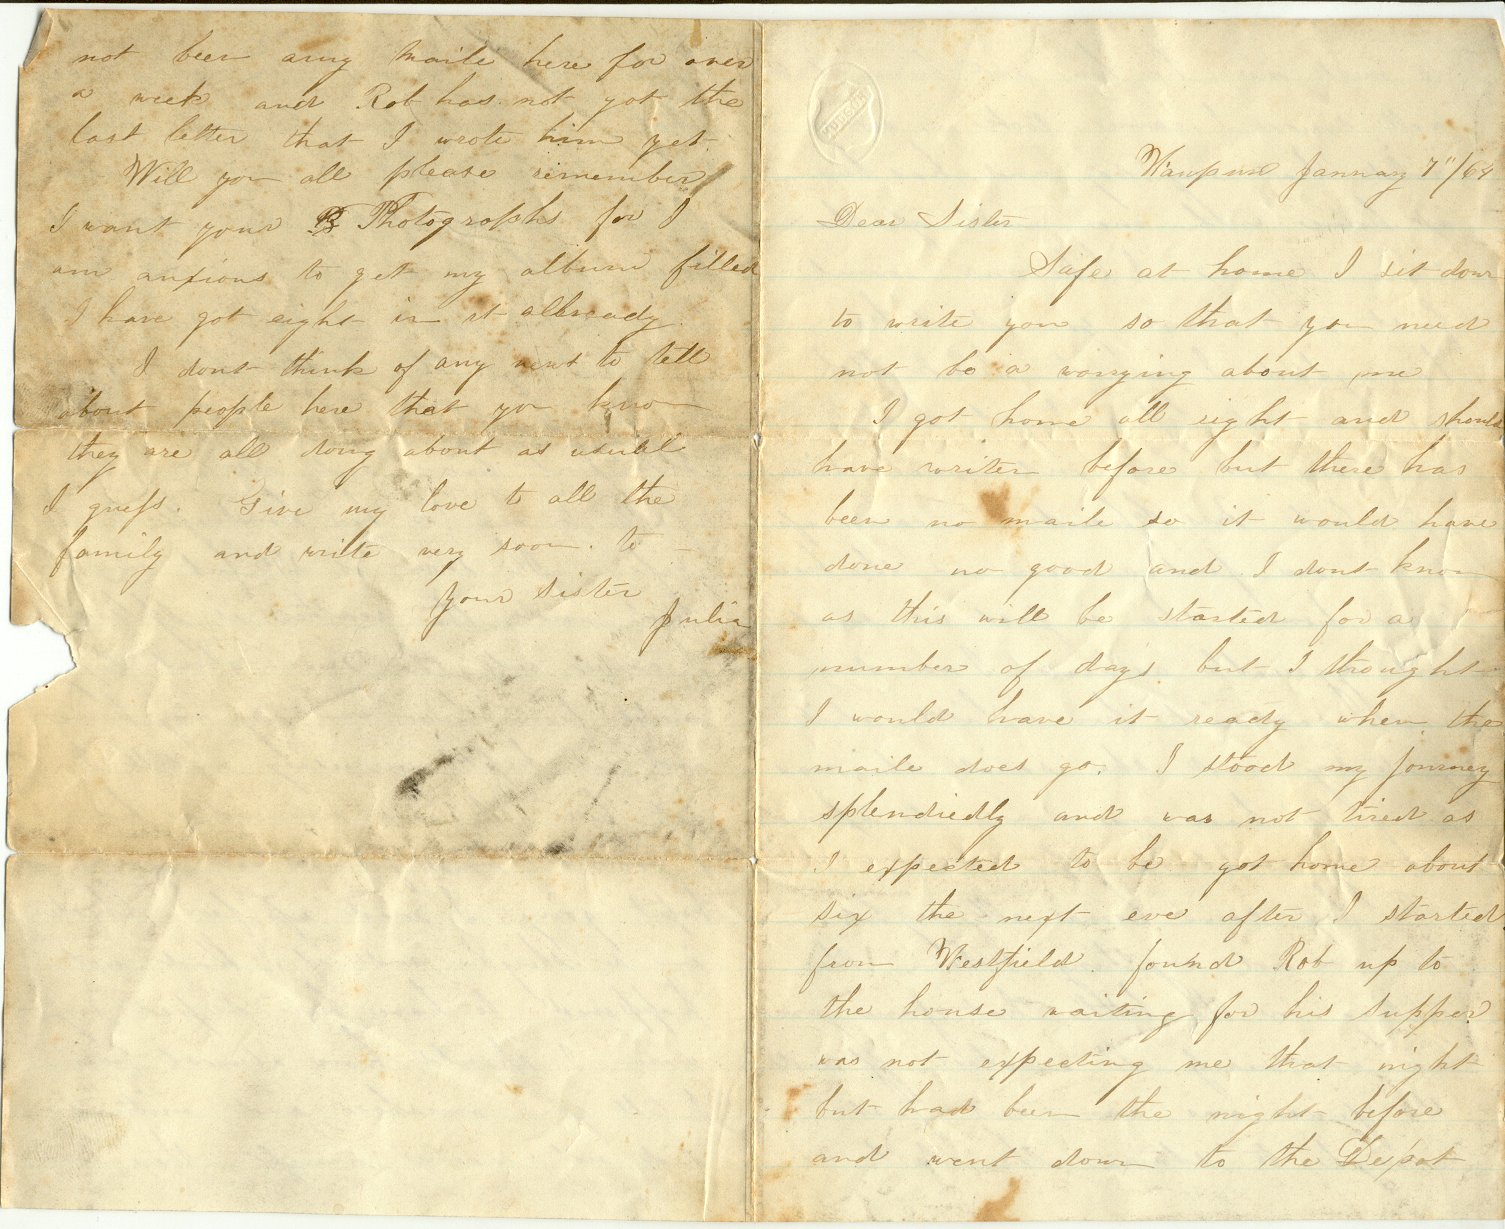 Waupun January 7"/64
Dear Sister
Safe at home I sit down
to write you so that you need
not be a worrying about me
I got home all right and should
have writen before but there has
been no maile so it would have
done no good and I dont know
as this will be started for a
number of days but I thought
I would have it ready when the
maile does go. I stood my journey
splendiedly and was not tired as
I expected to be got home about
six the next eve after I started
from Westfield. found Rob up to
the house waiting for his supper
was not expecting me that night
but had been the night before
and went down to the Depot
not been any maile here for over
a week and Rob has not got the
last letter that I wrote him yet.
Will you all please remember
I want your Photographs for I
am anxious to get my album filled
I have got eight in it allready
I dont think of any news to tell
about people here that you know
they are all doing about as usuall
I guess. Give my love to all the
family and write very soon. to
your sister
Julia